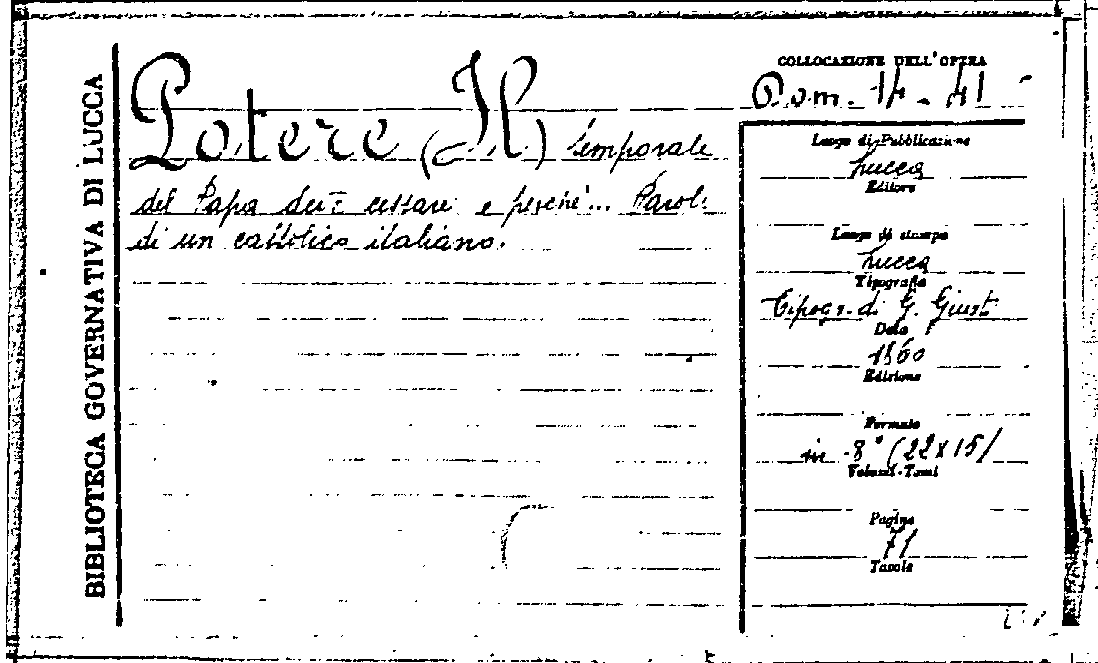 BIBLIOTECA GOVERNATIVA DI LUCCA
Potere (Il) temporale
del Papa deve cessare e perchè... Parole
di un cattolico italiano.
COLLOCAZIONE DELL'OPERA
Luogo di Pubblicazione
Lucca
Editore
Luogo di stampa
Lucca
Tipografia
Tipogr. di G. Giusti
Data
1860
Edizione
Formato
in -8° (22x15)
Volumi-Tomi
Pagine
71
Tavole